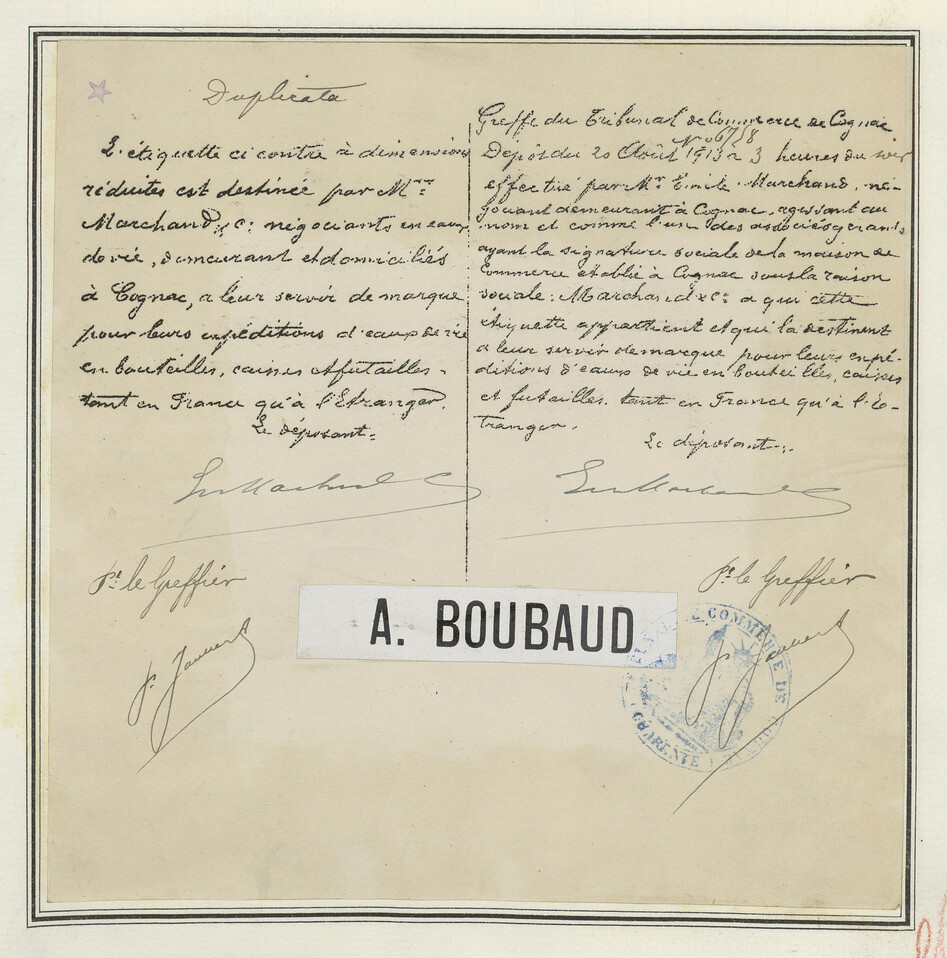 Duplicata
L'étiquette ci contre à dimensions
réduites est destinée par Mrs
Marchand & Cie négociants en eaux
de vie, demeurant et domiciliés
à Cognac, a leur servir de marque
pour leurs expéditions d'eaux de vie
en bouteilles, caisses et futailles
tant en France qu'à l'Etranger.
Le déposant:
Pr le Greffier
Greffe du Tribunal de Commerce de Cognac
No 6758
Dépôt du 20 Août 1913 a 3 heures du soir
effectué par Mr Emile Marchand, né-
gociant demeurant à Cognac, agissant au
nom et comme l'un des associés gérants
ayant la signature sociale de la maison de
Commerce établie à Cognac sous la raison
sociale: Marchand & Cie a qui cette
étiquette appartient et qui la destinent
a leur servir de marque pour leurs expé-
ditions d'eaux de vie en bouteilles, caisses
et futailles, tant en France qu'à l'é-
tranger.
Le déposant:
Pr le Greffier
A. BOUBAUD
COMMERCE DE
CHARENTE